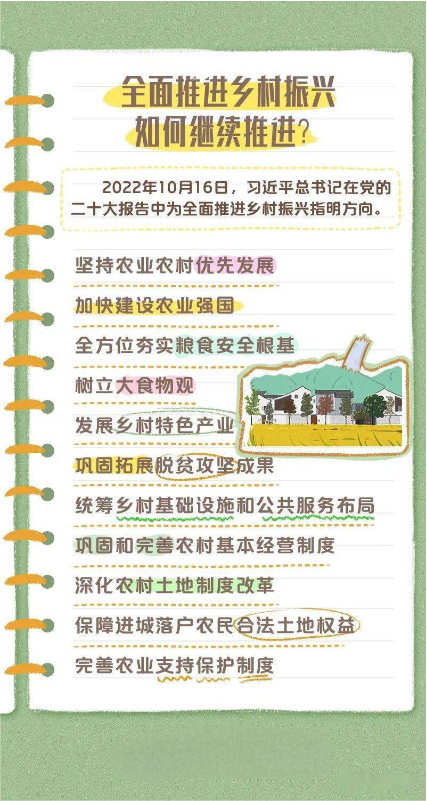 全面推进乡村振兴
如何继续推进？
2022年10月16日，习近平总书记在党的
二十大报告中为全面推进乡村振兴指明方向。
坚持农业农村优先发展
加快建设农业强国
全方位夯实粮食安全根基
树立大食物观
发展乡村特色产业
巩固拓展脱贫攻坚成果
统筹乡村基础设施和公共服务布局
巩固和完善农村基本经营制度
深化农村土地制度改革
保障进城落户农民合法土地权益
完善农业支持保护制度